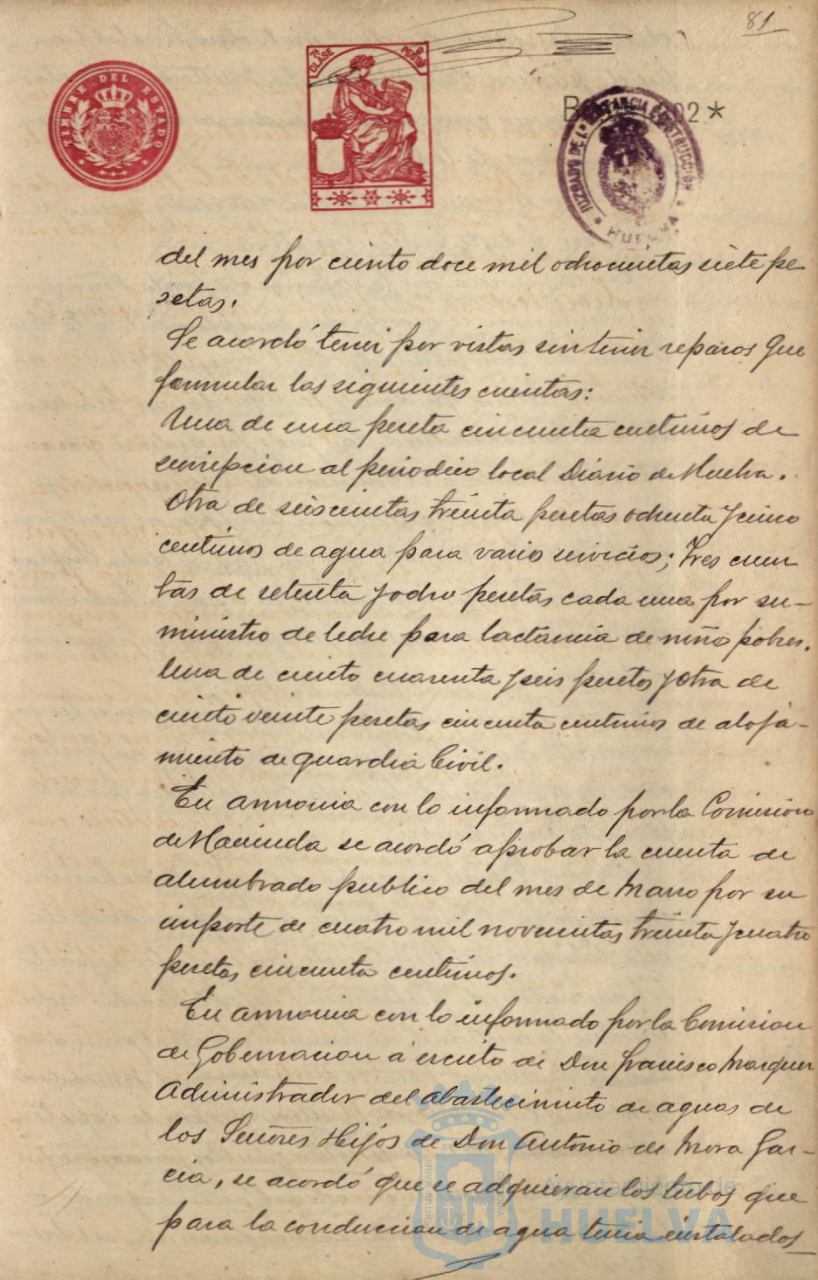 81
TIMBRE DEL ESTADO
7ª CLASE
JUZGADO DE 1ª INSTANCIA E INSTRUCCION
HUELVA
del mes por ciento doce mil ochocientas siete pe
setas.
Se acordó tener por vistas sin tener reparos que
formular las siguientes cuentas:
Una de una peseta cincuenta centimos de
suscripcion al periodico local Diario de Huelva.
Otra de seiscientas treinta pesetas ochenta y cinco
centimos de agua para vario servicios; tres cuen
tas de setenta y ocho pesetas cada una por su-
ministro de leche para lactancia de niño pobres.
Una de ciento cuarenta y seis pesetas y otra de
ciento veinte pesetas cincuenta centimos de aloja-
miento de guardia Civil.
En armonia con lo informado por la Comision
de Hacienda se acordó aprobar la cuenta de
alumbrado publico del mes de Marzo por su
importe de cuatro mil novecientas treinta y cuatro
pesetas cincuenta centimos.
En armonia con lo informado por la Comision
de Gobernacion á escrito de Don Francisco Marquez
Administrador del abastecimiento de aguas de
los Señores Hijos de Don Antonio de Mora Gar-
cia, se acordó que se adquieran los tubos que
para la conduccion de agua tenia instalados
Ayuntamiento de
HUELVA